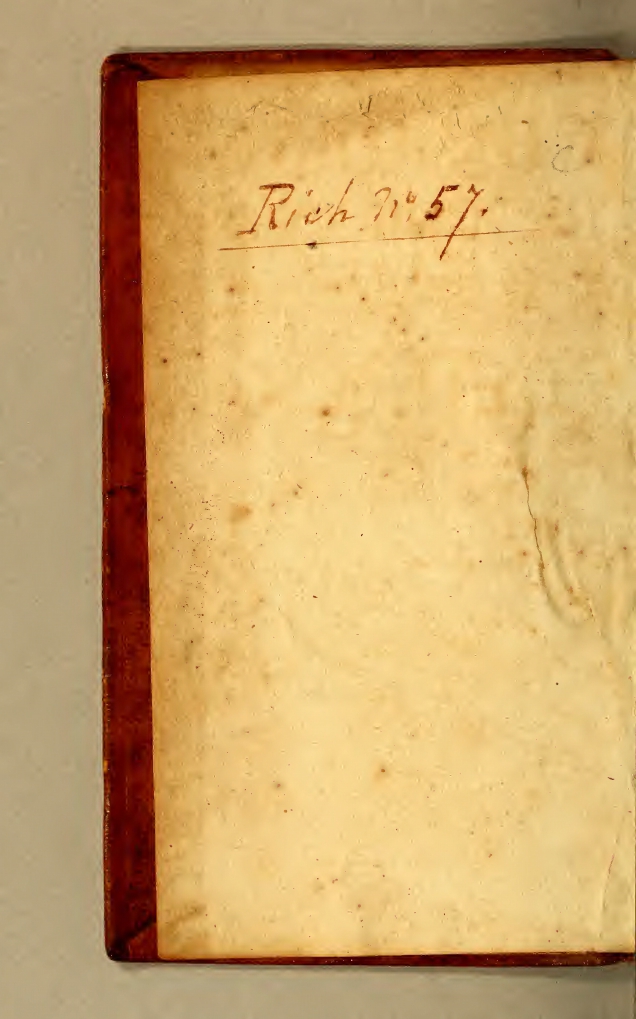 C
Rich Nº 57.